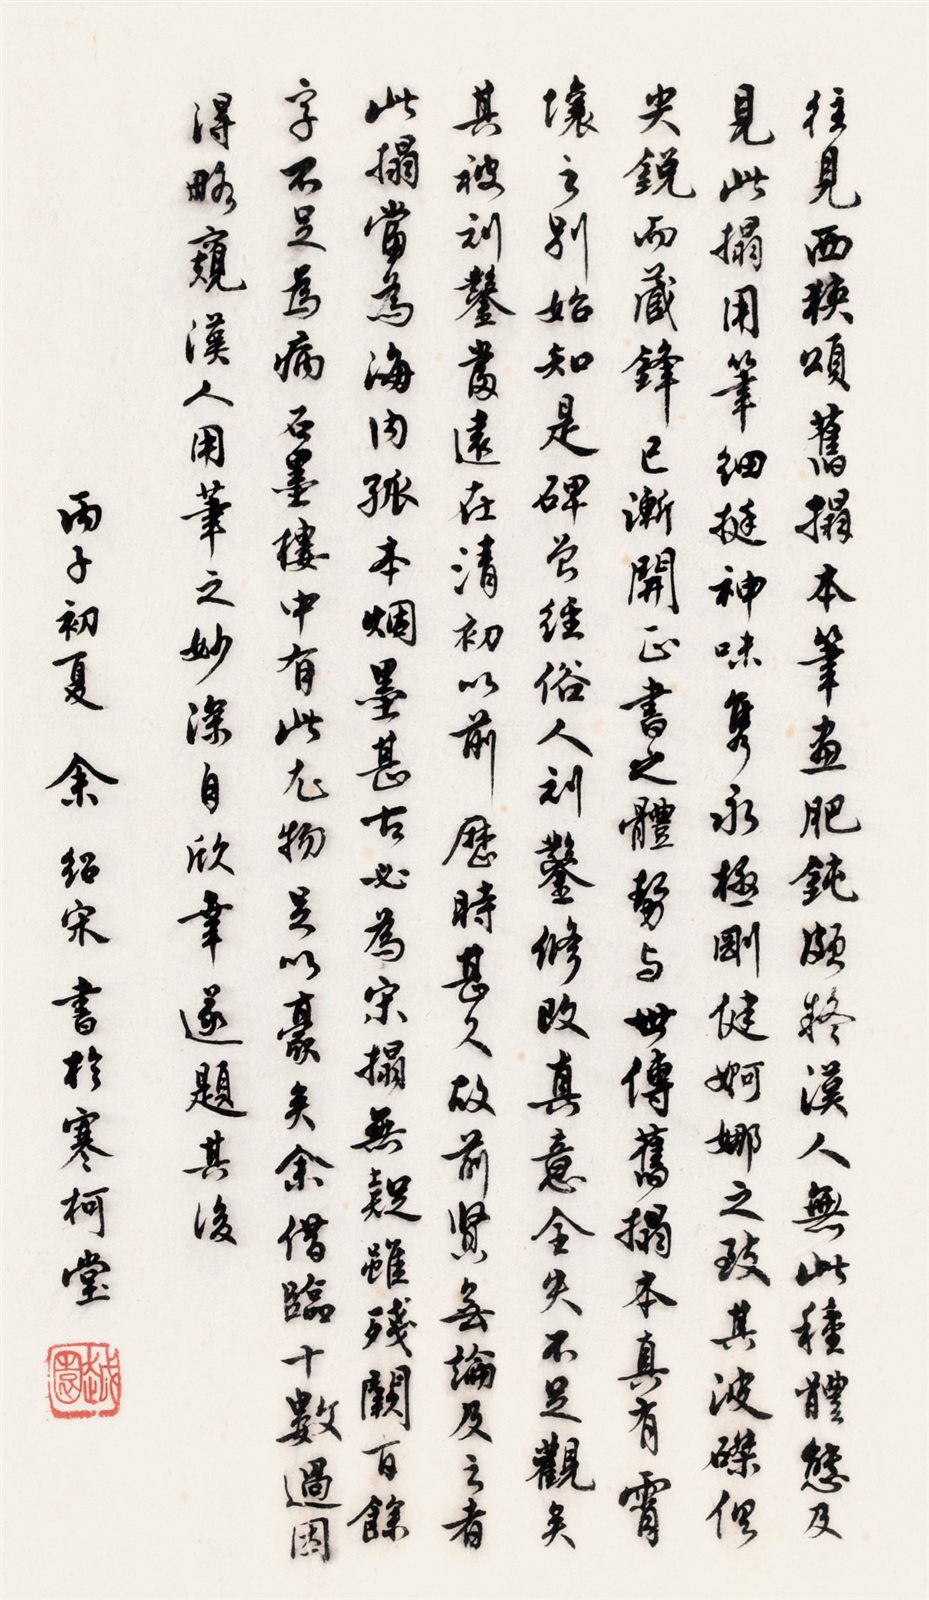 往見西狹頌舊搨本筆畫肥鈍頗疑漢人無此種體態及
見此搨用筆細挺神味雋永極剛健婀娜之致其波磔俱
尖銳而藏鋒已漸開正書之體勢与世傳舊搨本真有霄
壤之別始知是碑曾經俗人剜鑿修改真意全失不足觀矣
其被剜鑿當遠在清初以前歷時甚久故前賢無論及之者
此搨當為海內孤本烟墨甚古必為宋搨無疑雖殘闕百餘
字不足為病石墨樓中有此尤物足以豪矣余借臨十數過因
得略窺漢人用筆之妙深自欣幸遂題其後
丙子初夏 余紹宋書於寒柯堂
越園